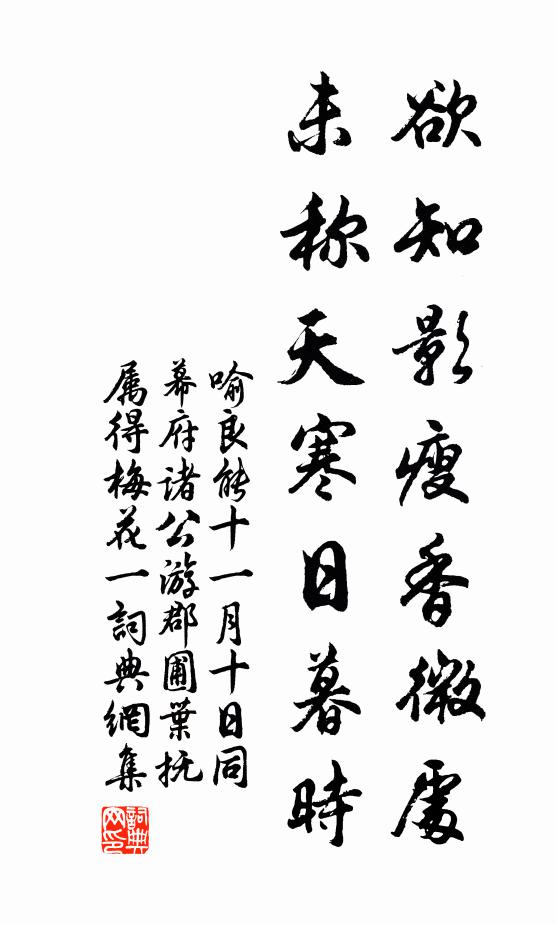 欲知影瘦香微處
未称天寒日暮時
喻良能十一月十日同
幕府诸公游郡圃葉抚
属得梅花一詞典網集
詞典
网印